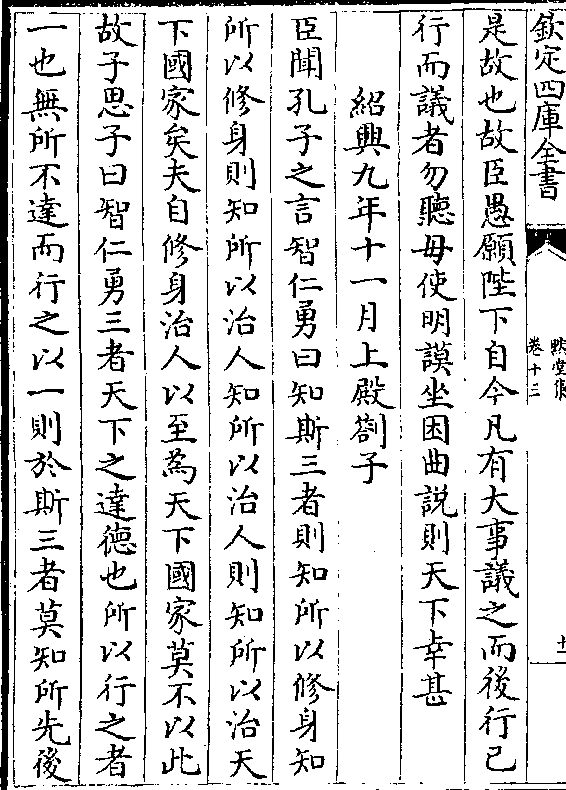 欽定四庫全書
默堂集
卷十三
十二
是故也故臣愚願陛下自今凡有大事議之而後行已
行而議者勿聽毋使明謨坐困曲説則天下幸甚
紹興九年十一月上殿劄子
臣聞孔子之言智仁勇曰知斯三者則知所以修身知
所以修身則知所以治人知所以治人則知所以治天
下國家矣夫自修身治人以至為天下國家莫不以此
故子思子曰智仁勇三者天下之達德也所以行之者
一也無所不達而行之以一則於斯三者莫知所先後